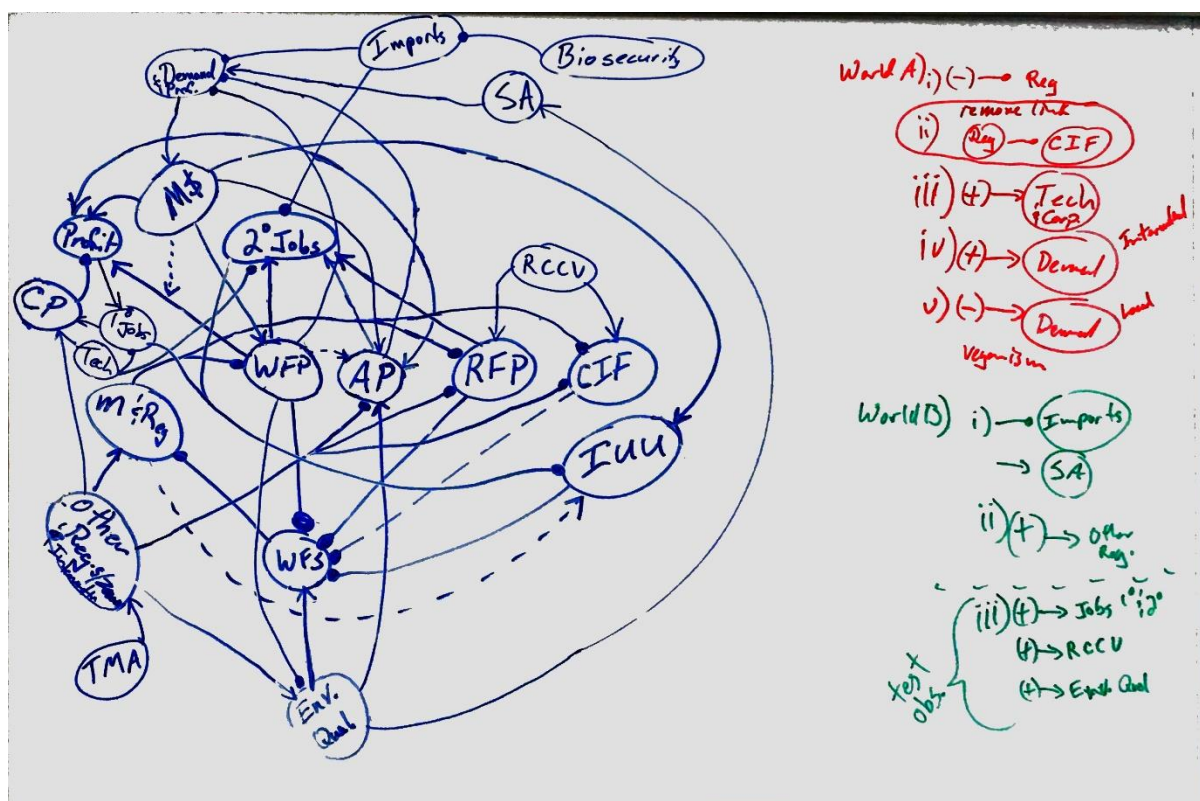 Imports
Biosecurity
Demand
& Pref.
SA
M$
Profit
2° Jobs
RCCV
CP
1° Jobs
Tech
WFP
AP
RFP
CIF
M & Reg
IUU
Other
Regs/
WFS
TMA
Env.
Qual
World A) i) (-) Reg
remove link
ii) Reg CIF
iii) (+) → Tech
& Corp.
iv) (+) → Demand
International
v) (-) → Demand
Local
Veganism
World B) i) Imports
→ SA
ii) (+) → Other
Reg.
iii) (+) → Jobs 1° & 2°
(+) → RCCV
(+) → Qual
test
obs.